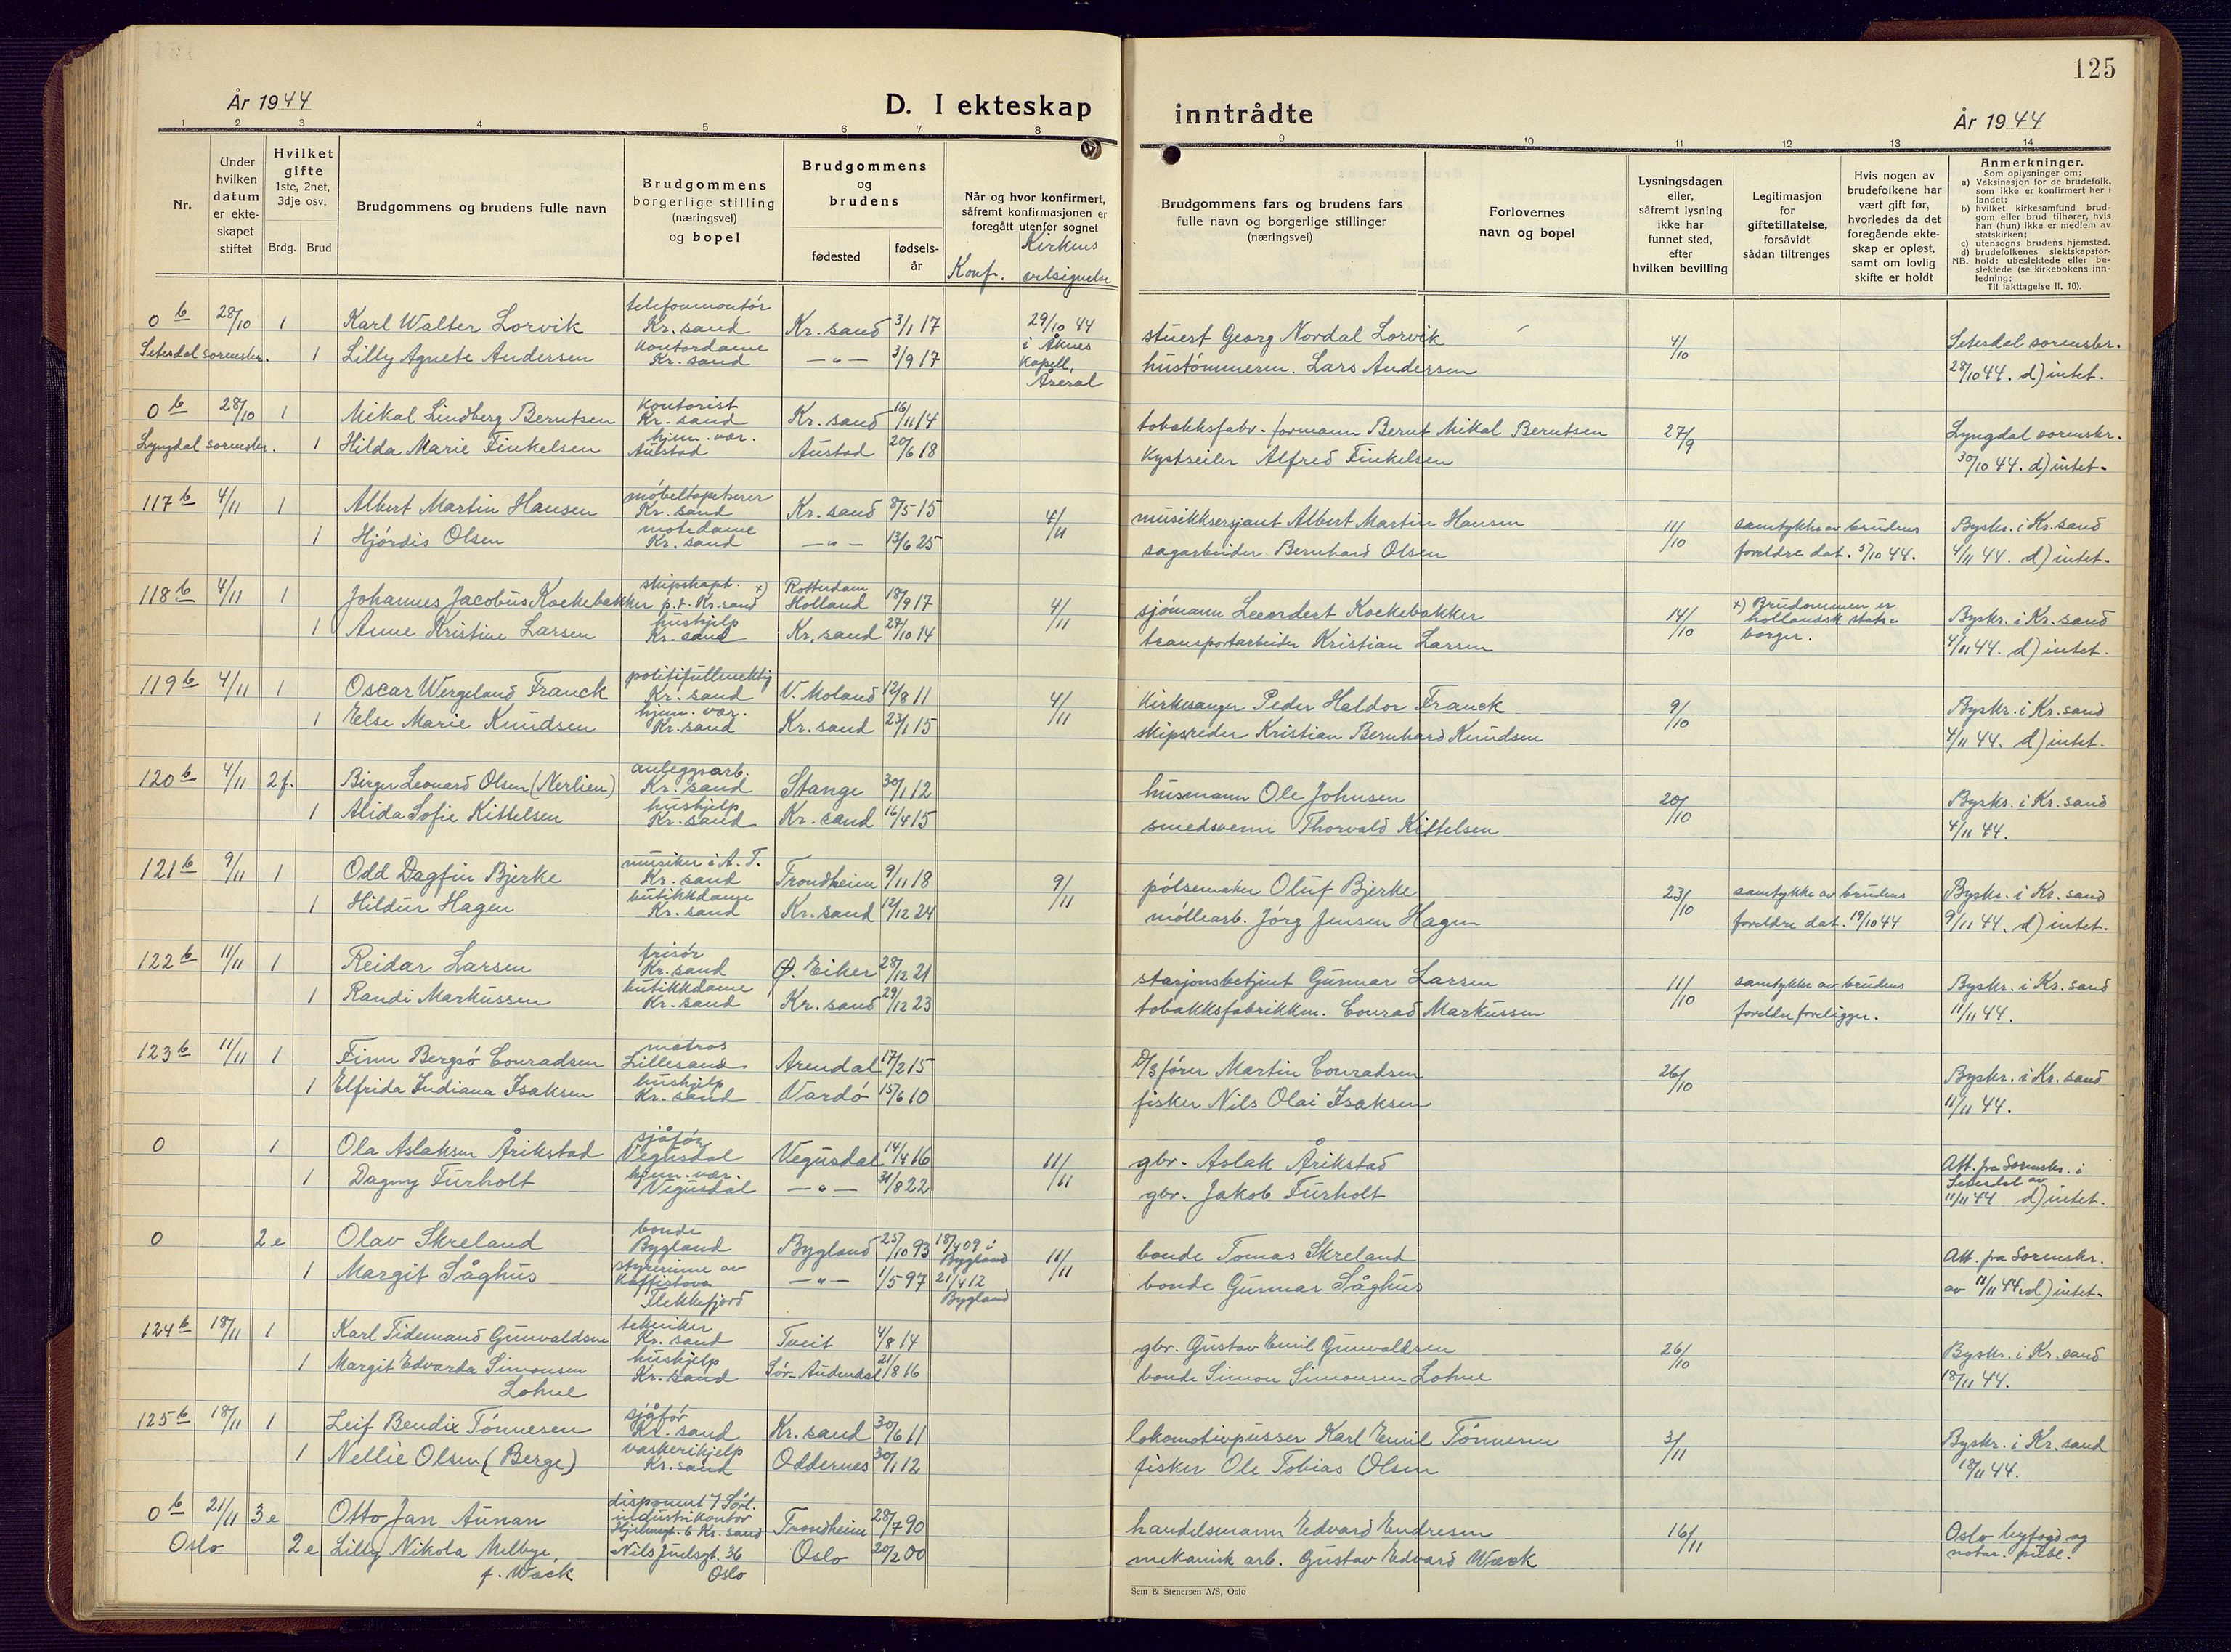 125
År 1944
D. I ekteskap inntrådte
År 1944
1 2 3 4 5 6 7 8 9 10 11 12 13 14
Nr.
Under hvilken datum er ekteskapet stiftet
Hvilket gifte 1ste, 2net, 3dje osv.
Brdg. Brud
Brudgommens og brudens fulle navn
Brudgommens borgerlige stilling (næringsvei) og bopel
Brudgommens og brudens
fødested
fødselsår
Når og hvor konfirmert, såfremt konfirmasjonen er foregått utenfor sognet
Konf. Kirkens velsignelse
Brudgommens fars og brudens fars fulle navn og borgerlige stillinger (næringsvei)
Forlovernes navn og bopel
Lysningsdagen eller, såfremt lysning ikke har funnet sted, efter hvilken bevilling
Legitimasjon for giftetillatelse, forsåvidt sådan tiltrenges
Hvis nogen av brudefolkene har vært gift før, hvorledes da det foregående ekteskap er opløst, samt om lovlig skifte er holdt
Anmerkninger.
Som oplysninger om:
a) Vaksinasjon for de brudefolk, som ikke er konfirmert her i landet;
b) hvilket kirkesamfund brudgom eller brud tilhører, hvis han (hun) ikke er medlem av statskirken;
c) utensogns brudens hjemsted.
d) brudefolkenes slektskapsforhold: ubeslektede eller beslektede (se kirkebokens innledning;
NB. Til iakttagelse II. 10).
0 b 28/10 1 Karl Walter Lorvik telefonmontör Kr.sand Kr.sand 3/1 17 29/10 44 i Åknes Kapell, Åseral stuert Georg Nordal Lorvik 4/10 Setesdal sorenskr.
Setesdal sorenskr. 1 Lilly Agnete Andersen kontordame Kr.sand —"— 3/9 17 hustömmerm. Lars Andersen 28/10 44. d) intet.
0 b 28/10 1 Mikal Lindberg Berntsen kontorist Kr.sand Kr.sand 16/11 14 tobakksfabr.-formann Bernt Mikal Berntsen 27/9 Lyngdal sorenskr.
Lyngdal sorenskr. 1 Hilda Marie Finkelsen hjem.vær. Austad Austad 20/6 18 Kystseiler Alfred Finkelsen 30/10 44. d) intet.
117 b 4/11 1 Albert Martin Hansen möbeltapetserer Kr.sand Kr.sand 8/5-15 4/11 musikksersjant Albert Martin Hansen 11/10 samtykke av brudens Byskr. i Kr.sand
1 Hjördis Olsen motedame Kr.sand —"— 13/6 25 sagarbeider Bernhard Olsen foreldre dat. 3/10 44. 4/11 44. d) intet.
118 b 4/11 1 Johannes Jacobus Kockebakker skipskapt. x) p.t. Kr.sand Rotterdam Holland 18/9 17 4/11 sjömann Leendert Kockebakker 14/10 x) Brudommen er hollandsk statsborger. Byskr. i Kr.sand
1 Anne Kristine Larsen hushjelp Kr.sand Kr.sand 27/10 14 transportarbeider Kristian Larsen 4/11 44. d) intet.
119 b 4/11 1 Oscar Wergeland Franck politifullmektig Kr.sand V. Moland 12/8 11 4/11 Kirkesanger Peder Haldor Franck 9/10 Byskr. i Kr.sand
1 Else Marie Knudsen hjem.vær. Kr.sand Kr.sand 23/1 15 skipsreder Kristian Bernhard Knudsen 4/11 44. d) intet.
120 b 4/11 2f. Birger Leonard Olsen (Nerlien) anleggsarb. Kr.sand Stange 30/1 12 husmann Ole Johnsen 20/10 Byskr. i Kr.sand
1 Alida Sofie Kittelsen hushjelp Kr.sand Kr.sand 16/4 15 smedsvenn Thorvald Kittelsen 4/11 44.
121 b 9/11 1 Odd Dagfin Bjerke musiker i A.T. Kr.sand Trondheim 9/11 18 9/11 pölsemaker Oluf Bjerke 23/10 samtykke av brudens Byskr. i Kr.sand
1 Hildur Hagen butikkdame Kr.sand Kr.sand 12/12 24 möllearb. Jörg Jensen Hagen foreldre dat. 19/10 44 9/11 44. d) intet.
122 b 11/11 1 Reidar Larsen frisör Kr.sand Ø. Eiker 28/12 21 stasjonsbetjent Gunnar Larsen 11/10 samtykke av brudens Byskr. i Kr.sand
1 Randi Markussen butikkdame Kr.sand Kr.sand 29/12 23 tobakksfabrikkm. Conrad Markussen foreldre foreligger. 11/11 44.
123 b 11/11 1 Finn Bergsö Conradsen matros Lillesand Arendal 17/2 15 D/S förer Martin Conradsen 26/10 Byskr. i Kr.sand
1 Elfrida Indiana Isaksen hushjelp Kr.sand Vardö 15/6 10 fisker Nils Olai Isaksen 11/11 44.
0 1 Ola Aslaksen Årikstad sjåför Vegusdal Vegusdal 14/4 16 11/11 gbr. Aslak Årikstad Att. fra Sorenskr. i
1 Dagny Furholt hjem.vær. Vegusdal —"— 31/8 22 gbr. Jakob Furholt Setesdal av 11/11 44 d) intet.
0 2e Olav Skreland bonde Bygland Bygland 25/10 93 18/4 09 i Bygland 11/11 bonde Tomas Skreland Att. fra Sorenskr.
1 Margit Såghus styrerinne av Kaffistova Flekkefjord —"— 1/5 97 21/4 12 Bygland bonde Gunnar Såghus av 11/11 44. d) intet.
124 b 18/11 1 Karl Tidemand Gunvaldsen tekniker Kr.sand Tveit 4/8 14 gbr. Gustav Emil Gunvaldsen 26/10 Byskr. i Kr.sand
1 Margit Edvarda Simonsen Lohne hushjelp Kr.sand Sör-Audnedal 21/8 16 bonde Simon Simonsen Lohne 18/11 44.
125 b 18/11 1 Leif Bendix Tönnesen sjåför Kr.sand Kr.sand 30/6 11 lokomotivpusser Karl Emil Tönnesen 3/11 Byskr. i Kr.sand
1 Nellie Olsen (Berge) vaskerihjelp Kr.sand Oddernes 30/1 12 fisker Ole Tobias Olsen 18/11 44.
0 b 21/11 3e Otto Jan Aunan disponent Sörl. industrikontor 6 Kr.sand Trondheim 28/7 90 handelsmann Edvard Endresen 16/11 Oslo byfogd og
Oslo 2e Lilly Nikola Melbye f. Wæck Nils Juelsgt. 36 Oslo Oslo 20/2 00 mekanisk arb. Gustav Edvard Wæck notar. publ.
Sem & Stenersen A/S, Oslo